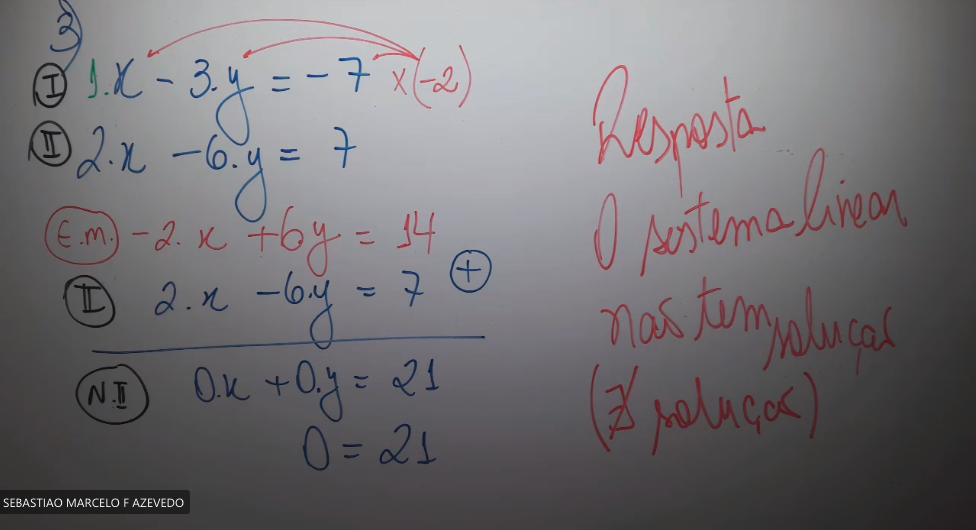 3)
I 1.x - 3.y = -7 x(-2)
II 2.x - 6.y = 7
E.M. -2.x + 6y = 14
II 2.x - 6.y = 7 +
N.II 0.x + 0.y = 21
0 = 21
Resposta
O sistema linear
não tem solução
(∄ solução)
SEBASTIAO MARCELO F AZEVEDO